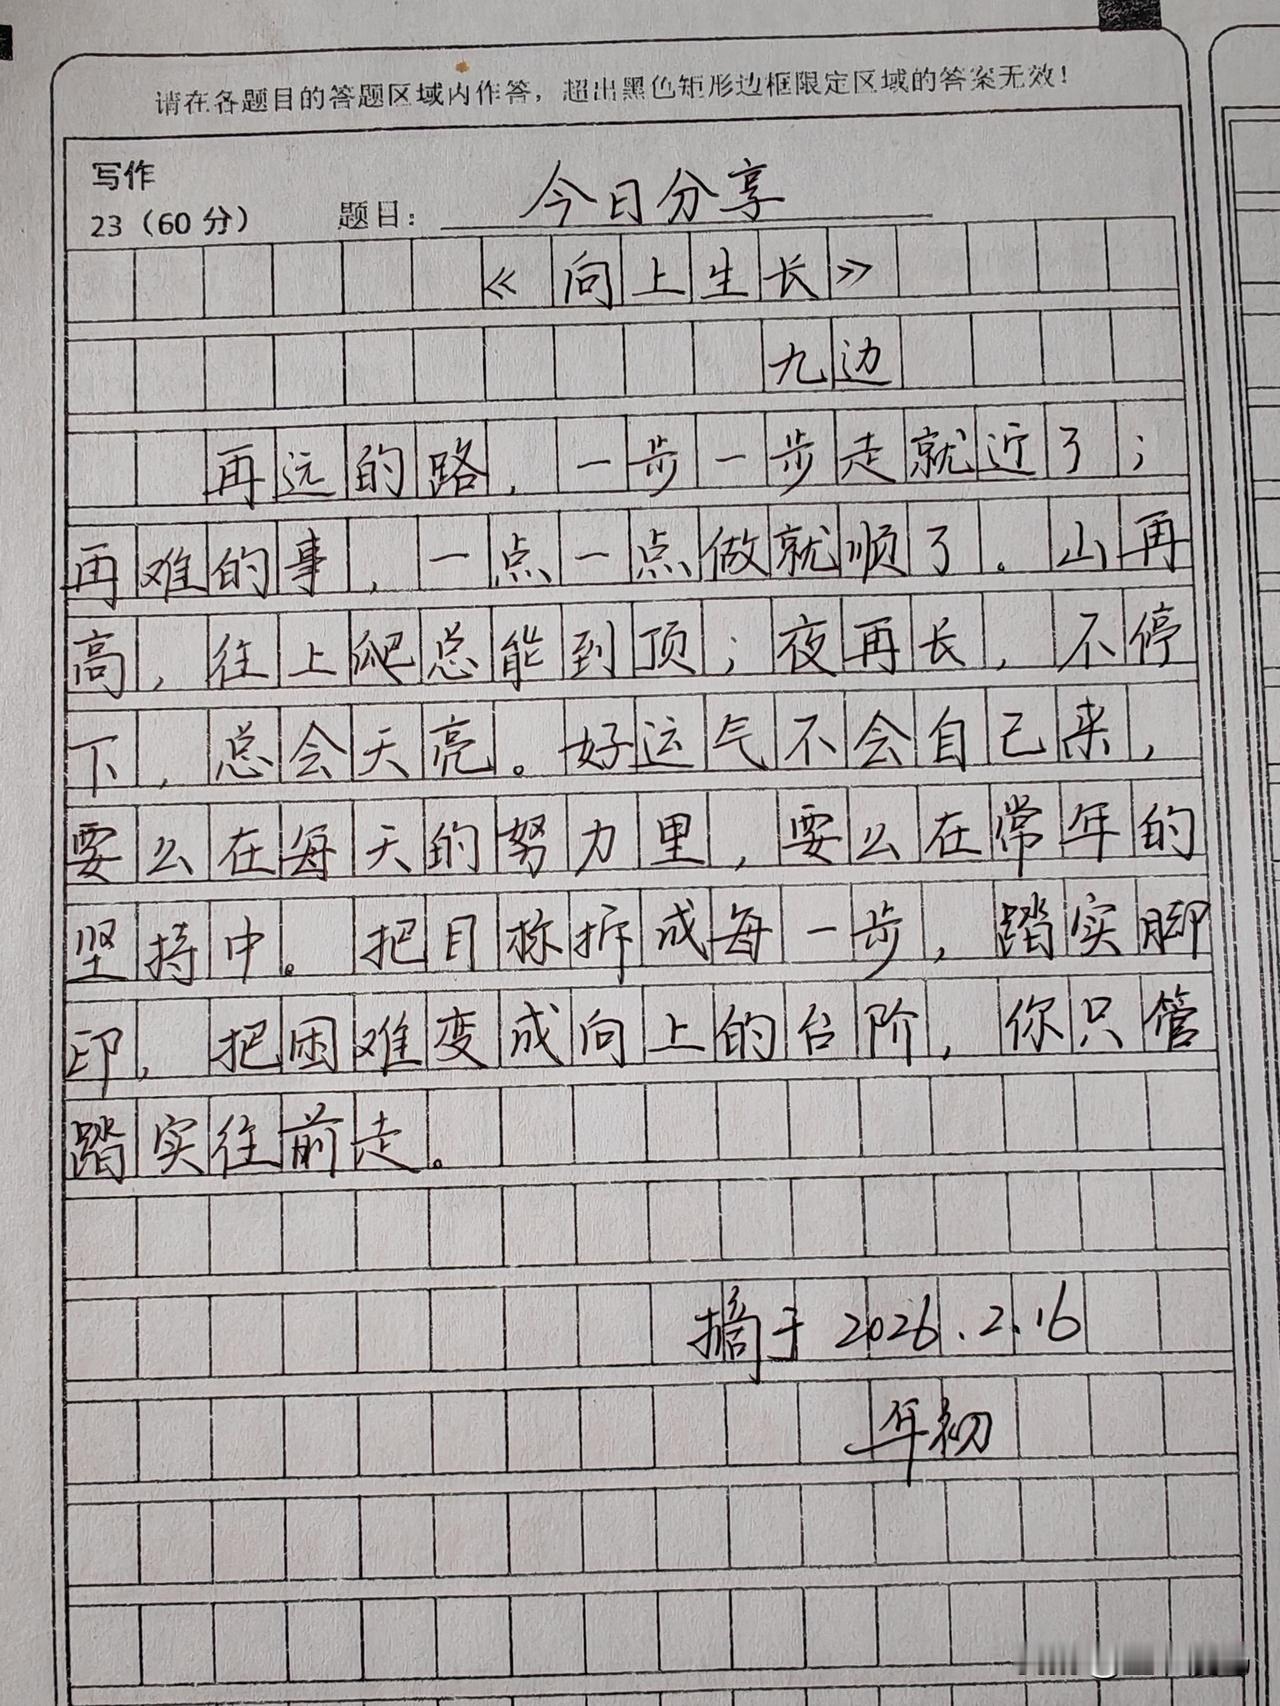 请在各题目的答题区域内作答，超出黑色矩形边框限定区域的答案无效！
写作
23（60分） 题目：今日分享
《向上生长》
九边
再远的路，一步一步走就近了；
再难的事，一点一点做就顺了。山再
高，往上爬总能到顶；夜再长，不停
下，总会天亮。好运气不会自己来，
要么在每天的努力里，要么在常年的
坚持中。把目标拆成每一步，踏实脚
印，把困难变成向上的台阶，你只管
踏实往前走。
摘于2026.2.16
年初